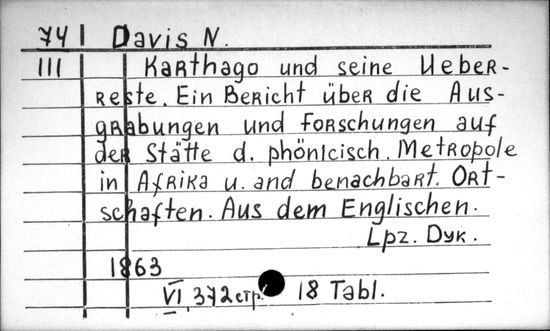 741 Davis N.
III Karthago und seine Ueber-
reste. Ein Bericht über die Aus-
grabungen und Forschungen auf
der Stätte d. phönicisch. Metropole
in Afrika u. and benachbart. Ort-
schaften. Aus dem Englischen.
Lpz. Dyk.
1863
VI, 372 стр. 18 Tabl.